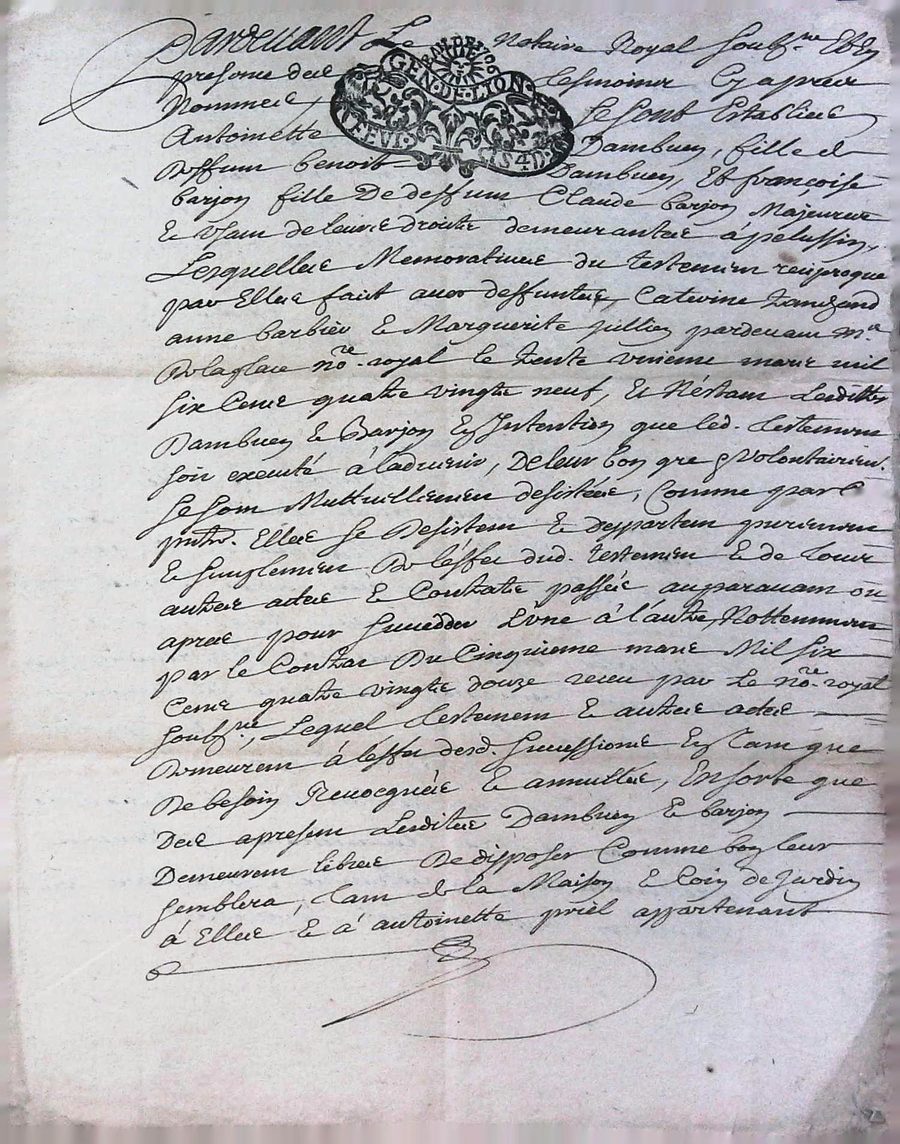 Pardevant Le Notaire Royal soubz.né Et En
GEN·DE·LION·
presence des tesmoings Cy apres
Nommes, se sont Establies
Antoinette Dambuen, fille de
deffunt benoit Dambuen, Et françoise
barjon fille De deffunt Claude barjon Majeures
Et usant de leurs droits demeurantes à pelussin,
Lesquelles Memoratives du testement reciproque
par Elles fait avec deffuntes Caterine
anne barbier & Marguerite jullien pardevant me
Delaplace nore. royal le trente unieme mars mil
six Cens quatre vingts neuf, Et Nestant Lesdittes
Dambuen & Barjon En Intention que led. testement
soit executé à ladvenir, De leur bon gre & Volontairemt.
se sont Mutuellement desistées, Comme par C
pntes. Elles se Desistent & deppartent purement
& simplement De l'effet dud. testement & de tous
autres actes & Contrats passés auparavant ou
apres pour succeder L'une à l'autre, Nottemment
par le Contrat Du Cinquieme mars Mil six
Cens quatre vingts douze receu par Le nore. royal
soubz.né, Lequel testement & autres actes
demeurent à l'effet desd. successions En tant que
De besoin Revocquées & annullées, En sorte que
Des apresent Lesdites Dambuen & barjon
Demeurent libres De disposer Comme bon leur
semblera, tant de la Maison & Coin de jardin
à Elles & à antoinette priel appartenant